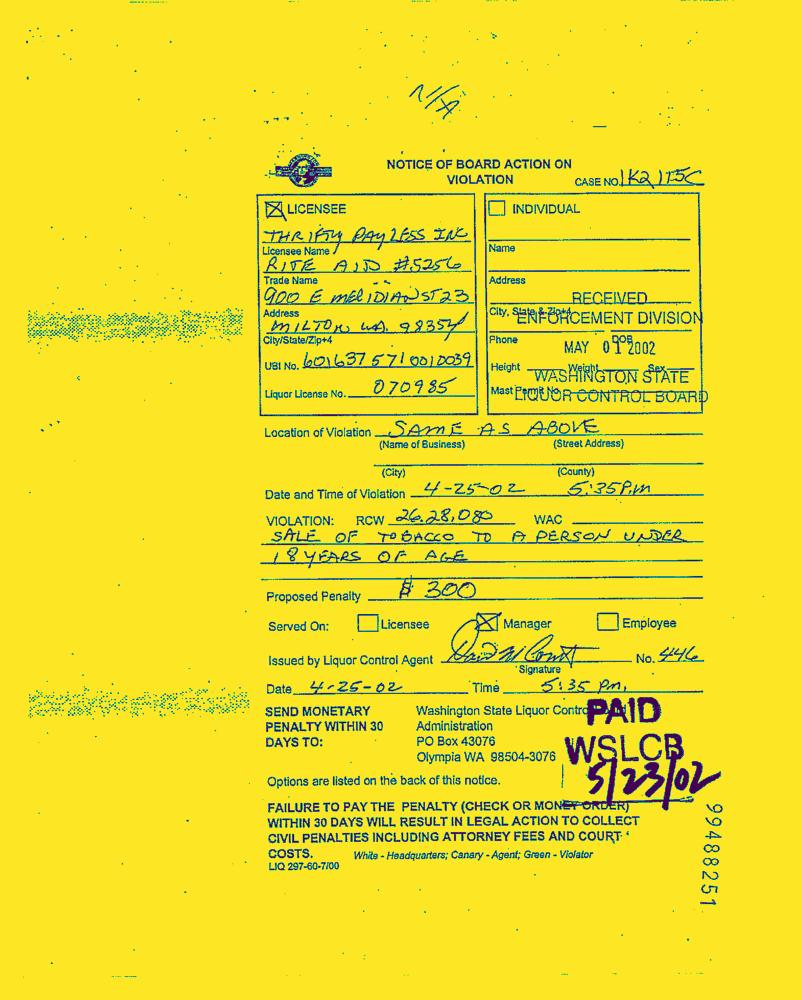 N/A
NOTICE OF BOARD ACTION ON
VIOLATION
CASE NO. 1K2115C
☒ LICENSEE
THRIFTY PAYLESS INC
Licensee Name
RITE AID #5256
Trade Name
900 E MERIDIAN ST 23
Address
MILTON, WA. 98354
City/State/Zip+4
UBI No. 601637 571 0010039
Liquor License No. 070985
☐ INDIVIDUAL
Name
Address
City, State & Zip+4
Phone DOB
Height Weight Sex
Mast Permit No.
RECEIVED
ENFORCEMENT DIVISION
MAY 01 2002
WASHINGTON STATE
LIQUOR CONTROL BOARD
Location of Violation SAME AS ABOVE
(Name of Business) (Street Address)
(City) (County)
Date and Time of Violation 4-25-02 5:35 P.M
VIOLATION: RCW 26.28.080 WAC
SALE OF TOBACCO TO A PERSON UNDER
18 YEARS OF AGE
Proposed Penalty $ 300
Served On: ☐ Licensee ☒ Manager ☐ Employee
Issued by Liquor Control Agent No. 446
Signature
Date 4-25-02 Time 5:35 Pm.
SEND MONETARY
PENALTY WITHIN 30
DAYS TO:
Washington State Liquor Control
Administration
PO Box 43076
Olympia WA 98504-3076
PAID
WSLCB
5/23/02
Options are listed on the back of this notice.
FAILURE TO PAY THE PENALTY (CHECK OR MONEY ORDER)
WITHIN 30 DAYS WILL RESULT IN LEGAL ACTION TO COLLECT
CIVIL PENALTIES INCLUDING ATTORNEY FEES AND COURT
COSTS.
White - Headquarters; Canary - Agent; Green - Violator
LIQ 297-60-7/00
99488251